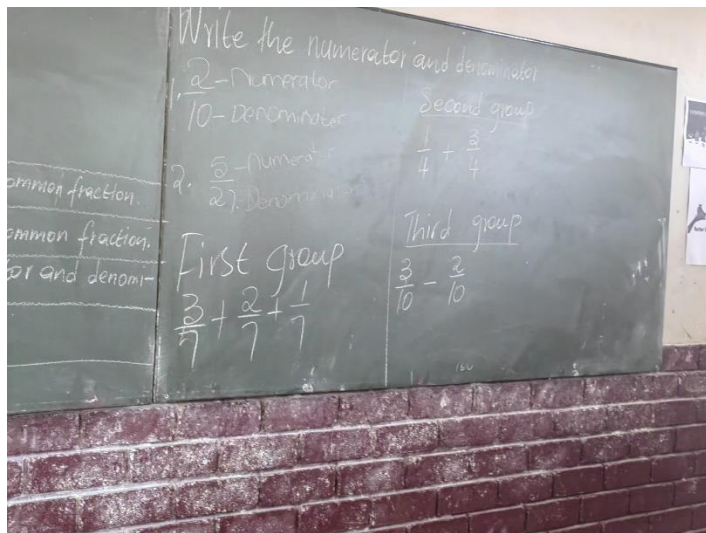 ommon fraction.
ommon fraction.
or and denomi-
Write the numerator and denominator
1. 2 - Numerator
10 - Denominator
2. 5 - Numerator
27. Denominator
First group
3/7 + 2/7 + 1/7
Second group
1/4 + 3/4
Third group
3/10 - 2/10